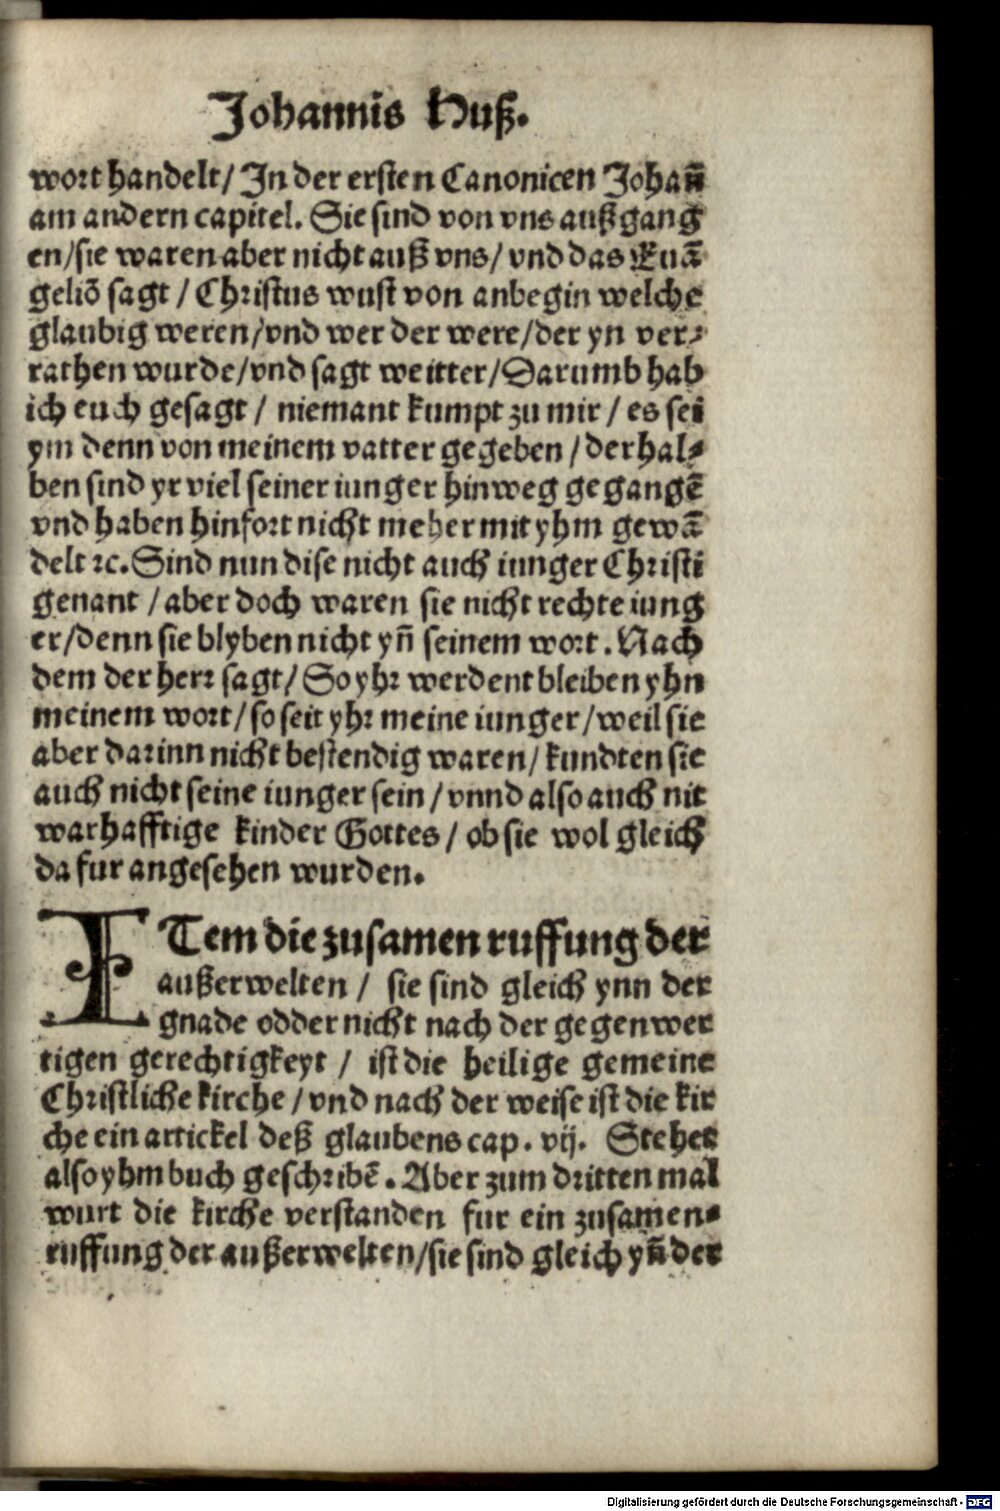 Johannis Huß.
wort handelt/ In der ersten Canonicen Johan̄
am andern capitel. Sie sind von vns außgang
en/sie waren aber nicht auß vns/ vnd das Euā
geliō sagt / Christus wust von anbegin welche
glaubig weren/vnd wer der were/der yn ver-
rathen wurde/vnd sagt weitter/Darumb hab
ich euch gesagt / niemant kumpt zu mir / es sei
ym denn von meinem vatter gegeben / derhal-
ben sind yr viel seiner iunger hinweg gegangē
vnd haben hinfort nicht meher mit yhm gewā
delt ꝛc. Sind nun dise nicht auch iunger Christi
genant / aber doch waren sie nicht rechte iung
er/denn sie blyben nicht yn̄ seinem wort. Nach
dem der herr sagt/ So yhr werdent bleiben yhn
meinem wort/ so seit yhr meine iunger/weil sie
aber darinn nicht bestendig waren/ kundten sie
auch nicht seine iunger sein / vnnd also auch nit
warhafftige kinder Gottes / ob sie wol gleich
da fur angesehen wurden.
ITem die zusamen ruffung der
außerwelten / sie sind gleich ynn der
gnade odder nicht nach der gegenwer
tigen gerechtigkeyt / ist die heilige gemeine
Christliche kirche / vnd nach der weise ist die kir
che ein artickel deß glaubens cap. vij. Stehet
also yhm buch geschribē. Aber zum dritten mal
wurt die kirche verstanden fur ein zusamen-
ruffung der außerwelten/sie sind gleich yn̄ der
Digitalisierung gefördert durch die Deutsche Forschungsgemeinschaft - DFG